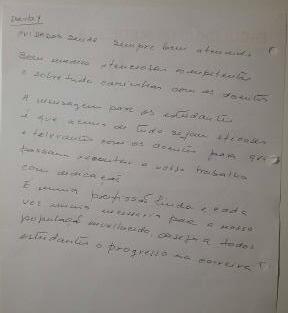 cuidados sendo sempre bem atendido
bem medico atenciosas competentes
e sobretudo carinhosas com os doentes
A mensagem para os estudantes
é que acima de tudo sejam
e tolerantes com os doentes para que
possam executar o vosso trabalho
com dedicação
É uma profissão linda e cada
vez mais necessária para a nossa
população envelhecida, desejo a todos
estudantes o progresso na carreira